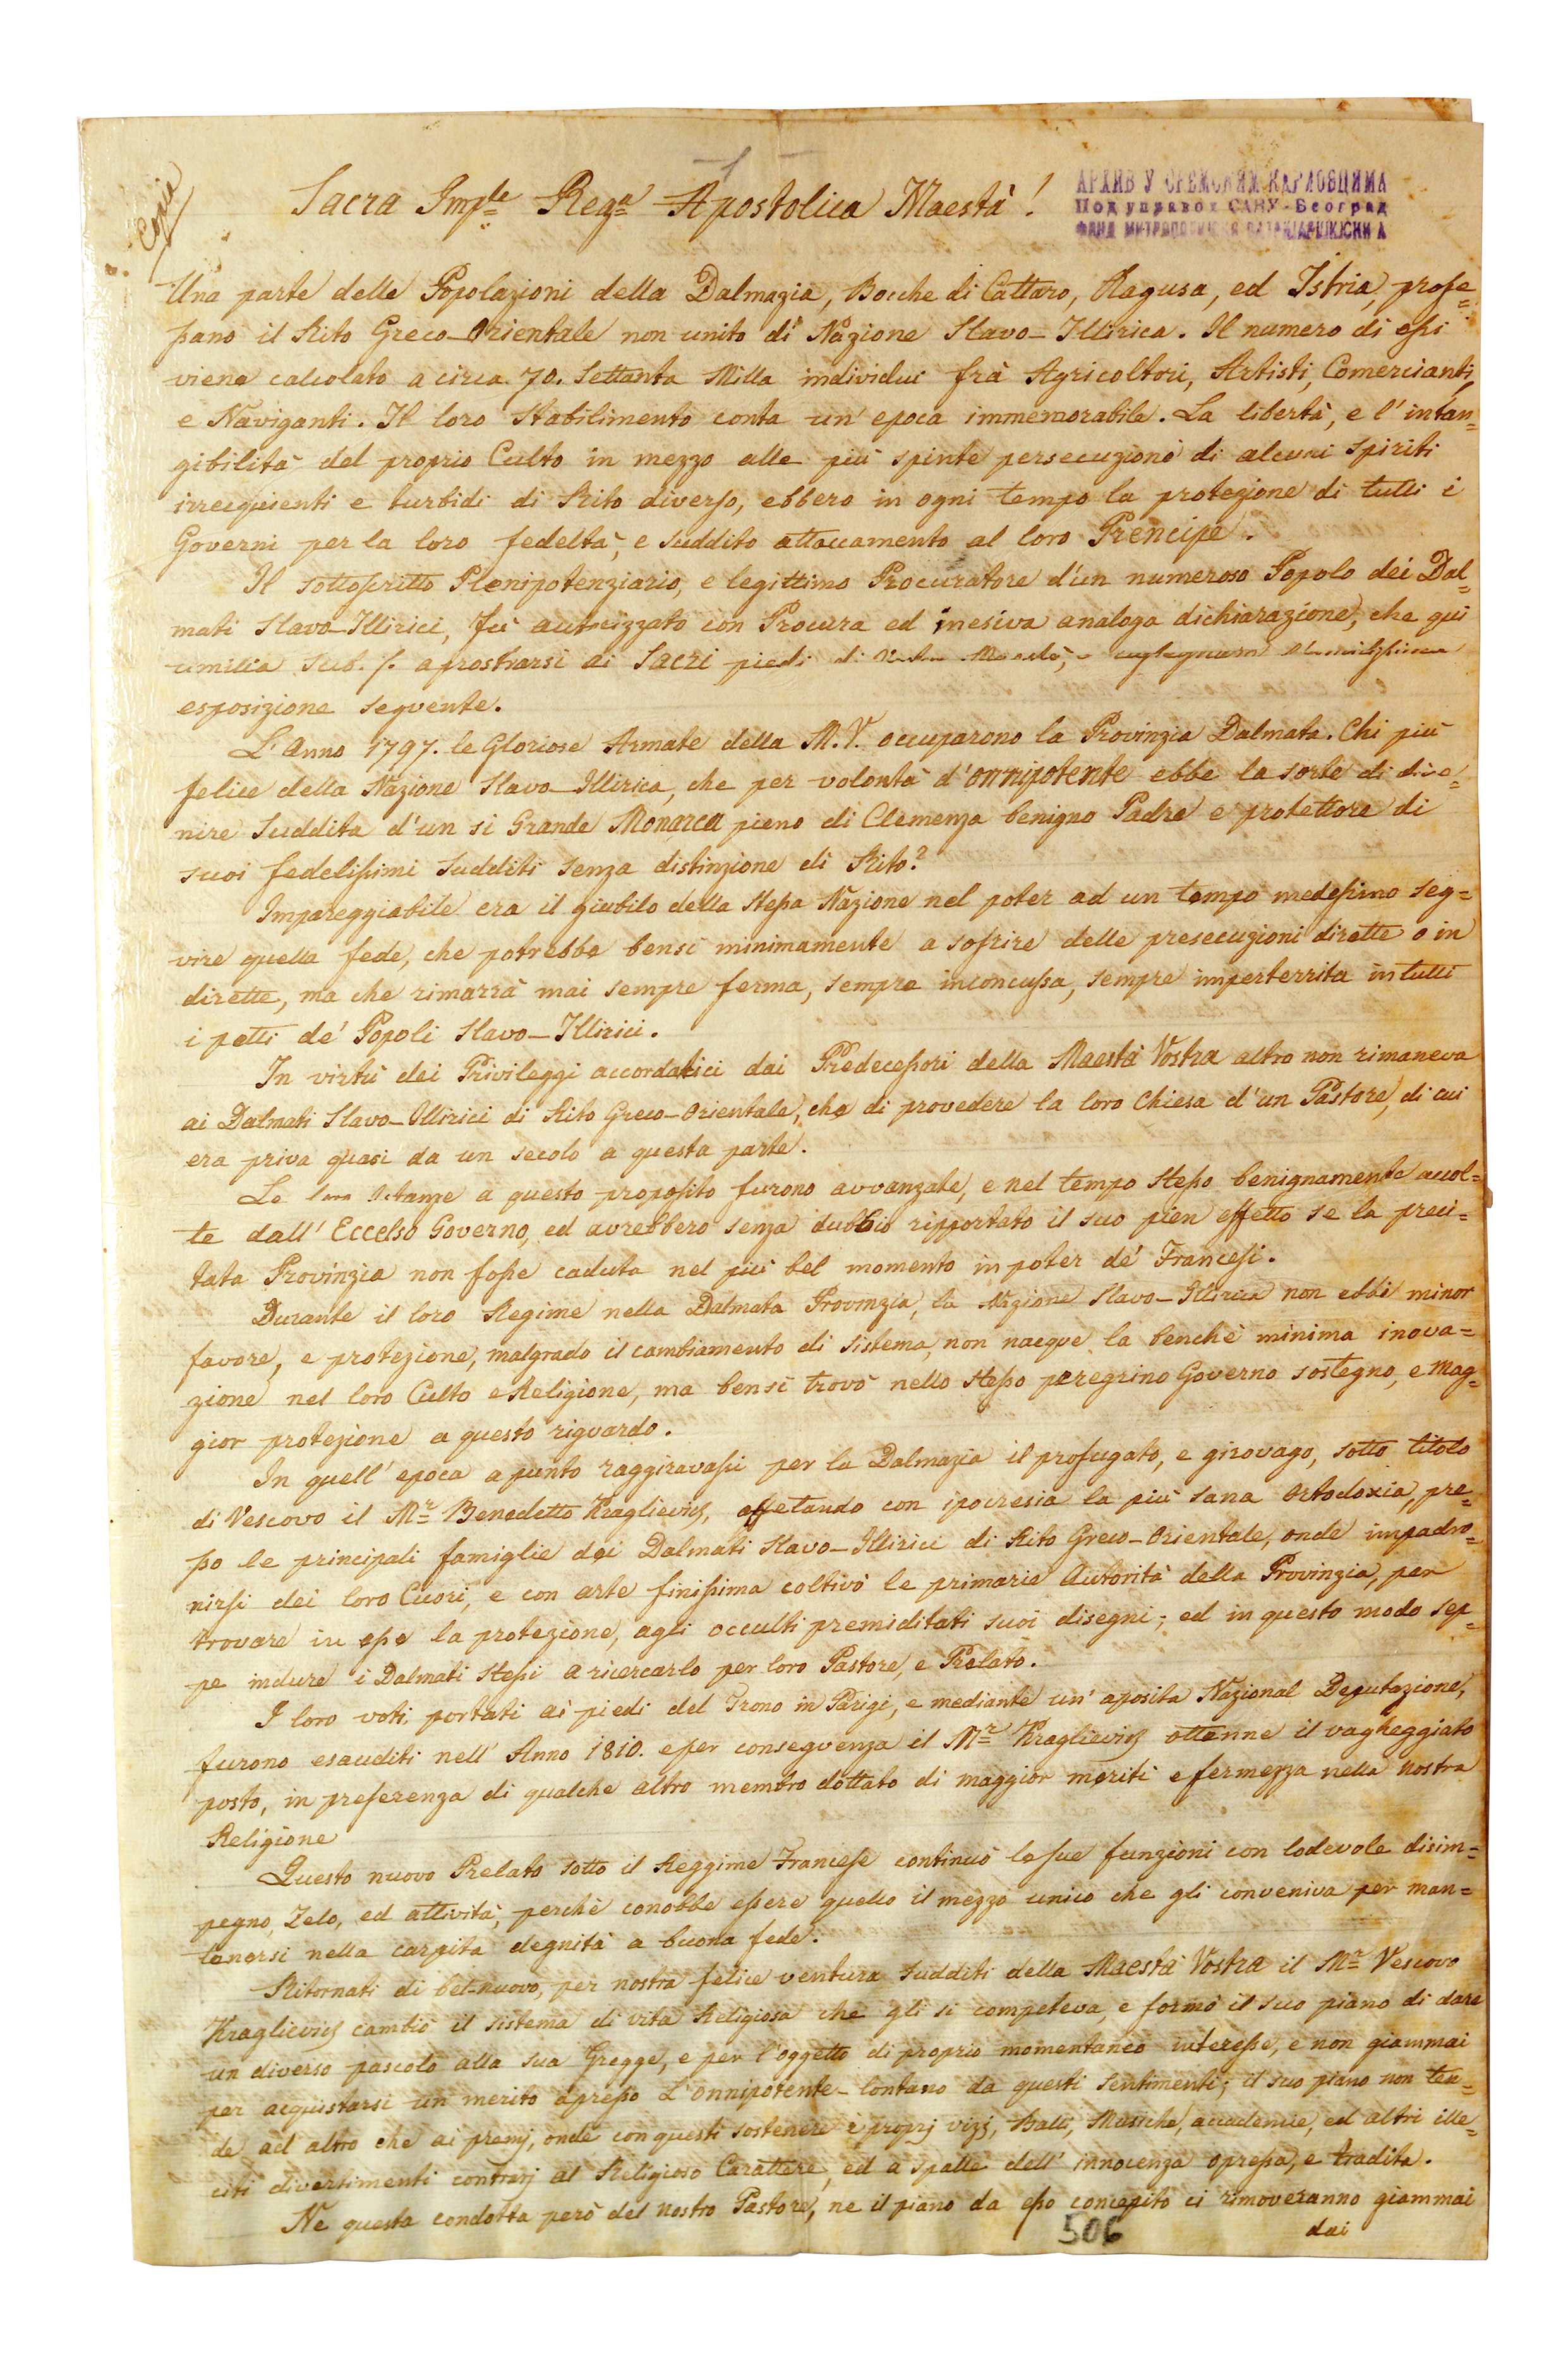 Copia
Sacra Imp.le Reg.a Apostolica Maestà!
АРХИВ У СРЕМСКИМ КАРЛОВЦИМА
Под управом САНУ-Београд
ФОНД
Una parte delle Popolazioni della Dalmazia, Bocche di Cattaro, Ragusa, ed Istria, profe=
ßano il Rito Greco-Orientale non unito di Nazione Slavo-Illirica. Il numero di eßi
viene calcolato a circa 70. Settanta Milla individui frà Agricoltori, Artisti, Comercianti,
e Naviganti. Il loro Stabilimento conta un' epoca immemorabile. La libertà, e l' intan=
gibilità del proprio Culto in mezzo alle più spinte persecuzioni di alcuni spiriti
irrequienti e turbidi di Rito diverso, ebbero in ogni tempo la protezione di tutti i
Governi per la loro fedeltà, e suddito attaccamento al loro Prencipe.
Il sottoscritto Plenipotenziario, e legittimo Procuratore d'un numeroso Popolo dei Dal=
mati Slavo-Illirici, fù autorizzato con Procura ed inesiva analoga dichiarazione, che qui
umilia sub. /. a prostrarsi ai Sacri piedi di Vostra Maestà,
esposizione seguente.
L'Anno 1797. le Gloriose Armate della M.V. occuparono la Provinzia Dalmata. Chi più
felice della Nazione Slavo-Illirica, che per volontà d'onnipotente ebbe la sorte di dive=
nire Suddita d'un si Grande Monarca pieno di Clemenza benigno Padre e protettore di
suoi fedelißimi sudditi senza distinzione di Rito?
Impareggiabile era il giubilo della Steßa Nazione nel poter ad un tempo medesimo seg=
vire quella fede, che potrebbe bensi minimamente a sofrire delle presecuzioni dirette o in
dirette, ma che rimarrà mai sempre ferma, sempre inconcußa, sempre imperterrita in tutti
i petti de' Popoli Slavo-Illirici.
In virtù dei Privileggi accordatici dai Predeceßori della Maestà Vostra altro non rimaneva
ai Dalmati Slavo-Illirici di Rito Greco-Orientale, che di provedere la loro Chiesa d'un Pastore, di cui
era priva quasi da un secolo a questa parte.
Le loro Istanze a questo proposito furono avvanzate, e nel tempo Steßo benignamente accol=
te dall' Eccelso Governo, ed avrebbero senza dubbio ripportato il suo pien effetto se la preci=
tata Provinzia non foße caduta nel più bel momento in poter de' Francesi.
Durante il loro Regime nella Dalmata Provinzia, la Nazione Slavo-Illirica non ebbe minor
favore, e protezione, malgrado il cambiamento di sistema, non nacque la benchè minima inova=
zione nel loro Culto e Religione, ma bensi trovò nello Steßo peregrino Governo sostegno, e mag=
gior protezione a questo riguardo.
In quell' epoca apunto raggiravasi per la Dalmazia il profugato, e girovago, sotto titolo
di Vescovo il M.r Benedetto Kraglievich, affetando con ipocresia la più sana Ortodoxia, pre=
ßo le principali famiglie dei Dalmati Slavo-Illirici di Rito Greco-Orientale, onde impadro=
nirsi dei loro Cuori, e con arte finißima coltivò le primarie Autorità della Provinzia, per
trovare in eße la protezione, agli occulti premiditati suoi disegni; ed in questo modo sep=
pe indure i Dalmati Steßi a ricercarlo per loro Pastore, e Prelato.
I loro voti portati ai piedi del Trono in Parigi, e mediante un' aposita Nazional Deputazione,
furono esauditi nell' Anno 1810. e per conseguenza il M.r Kraglievich ottenne il vagheggiato
posto, in preferenza di qualche altro membro dottato di maggior meriti e fermezza nella nostra
Religione
Questo nuovo Prelato sotto il Reggime Francese continuò le sue funzioni con lodevole disim=
pegno, Zelo, ed attività, perchè conobbe eßere quello il mezzo unico che gli conveniva per man=
tenersi nella carpita degnità a buona fede.
Ritornati di bel-nuovo, per nostra felice ventura sudditi della Maestà Vostra il M.r Vescovo
Kraglievich cambiò il sistema di vita Religiosa che gli si competeva, e formò il suo piano di dare
un diverso pascolo alla sua Gregge, e per l'oggetto di proprio momentaneo intereße, e non giammai
per acquistarsi un merito apreßo L'onnipotente-lontano da questi sentimenti; il suo piano non ten=
de ad altro che ai premj, onde con questi sostenere i proprj vizj, Balli, Musiche, accademie, ed altri ille=
citi divertimenti contrarj al Religioso Carattere, ed a spalle dell' innocenza opreßa, e tradita.
Ne questa condotta però del nostro Pastore, ne il piano da eßo concepito ci rimoveranno giammai
dai
506